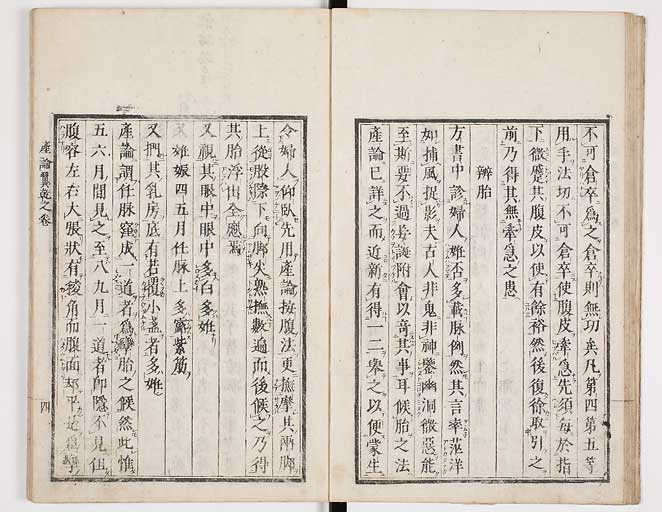 不可倉卒爲之倉卒則無功矣凡第四第五等
用手法切不可倉卒使腹皮牽急先須每於指
下微蹙其腹皮以使有餘裕然後復徐取引之
前乃得其無牽急之患
辨胎
方書中診婦人姙否多載脉例然其言率茫洋
如捕風捉影夫古人非鬼非神鑒幽洞微惡能
至斯要不過妄誕附會以奇其事耳候胎之法
產論已詳之而近新有得一二舉之以便蒙生
令婦人仰臥先用產論按腹法更撫摩其兩脚
上從股際下向脚尖熟撫數遍而後候之乃得
其胎浮出全應焉
又視其眼中眼中多白多姙
又姙娠四五月任脉上多紫筋
又捫其乳房底有若覆小盞者多姙
產論謂任脉窪成一道者爲孿胎之候然此惟
五六月間見之至八九月一道者即隱不見但
腹容左右大脹狀有稜角而腹面却平是爲孿
產論翼乾之卷
四